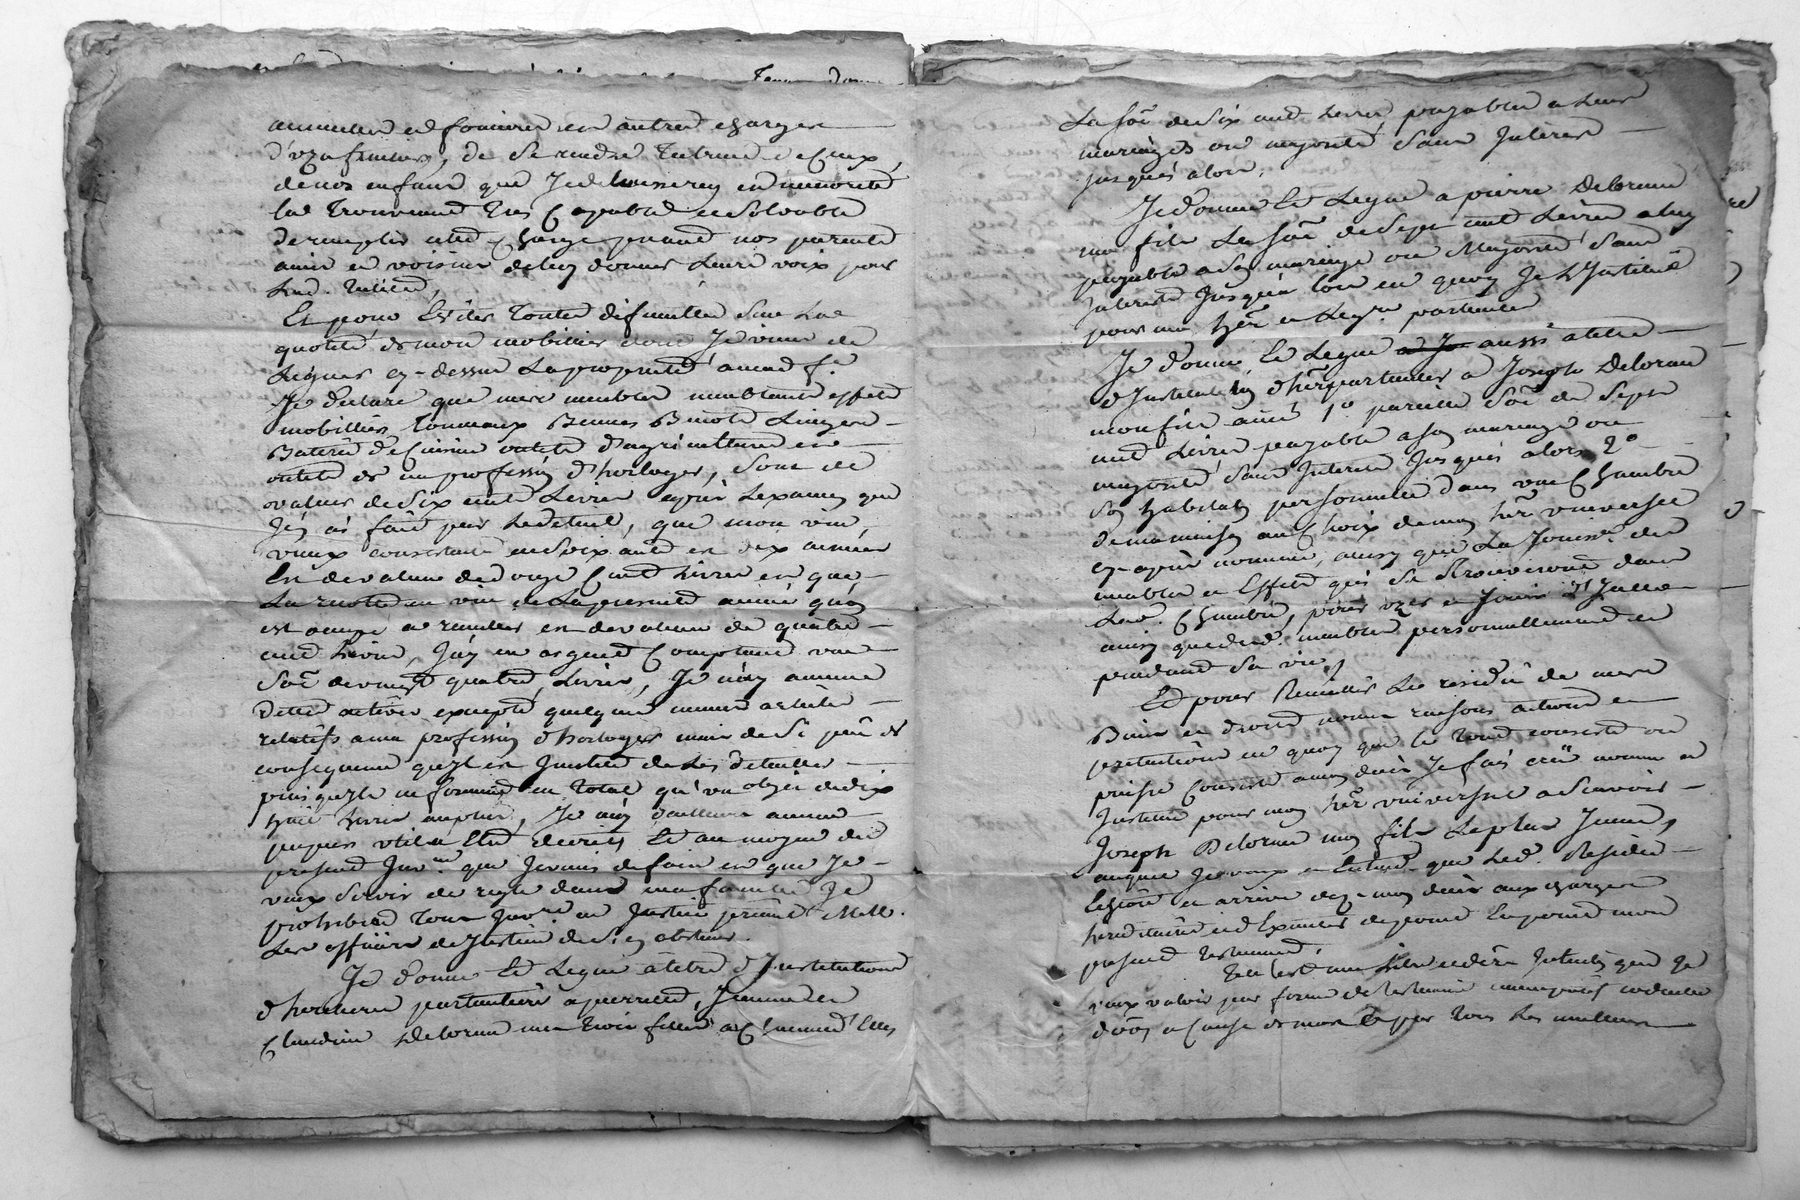 annuelles et foncieres et autres charges
d'uzufruitiers, de se rendre tutrice de ceux
de nos enfans que je delaisserey en minorité
la trouvant tres capable et solvable
de remplir cette charge priant nos parents
amis et voisins de luy donner leurs voix pour
lad. tutelle,
Et pour eviter toutes dificultés sur la
quotité de mon mobillier dont je viens de
leguer cy-dessus la proprieté a mad. f.e
Je declare que mes meubles meublants effets
mobilliers, tonneaux Bennes Benots Linges
Baterie de cuisine outils d'agriculture et
outils de ma profession d'horloger, sont de
valeur de six cent Livres apres l'examen que
j'en ai fait par le detail, que mon vin
vieux consistant en soix ante et dix années
Est de valeur de douze cent livres et que
La recolte en vin de la presente année qu'on
est occupé a est de valeur de quatre
cent livres, j'ay en argent comptant une
soē de vingt quatre livres, je n'ay aucune
dettes actives excepté quelques menus articles
relatifs a ma profession d'horloger mais de si peu de
consequence qu'il est inutile de les detailler
puis qu'ils ne forment en total qu'un objet de dix
huit livres au plus, je n'ay d'ailleurs aucuns
papiers utiles Et au moyen du
present inv.re que je viens de faire et que je
veux servir de regle dans ma famille je
prohibe tous inv.re en justice priant Mess.
Les officiers de justice de s'en abstenir.
Je donne Et Legue a titre d'Institution
d'heritiere particuliere a pierrette, Jeanne et
Claudine Delorme mes trois filles a Chacune d'elles
La soē de six cent Livres payables a leurs
mariages ou majorité sans interets
jusques alors,
Je donne Et Legue a pierre Delorme
mon fils La soē de sept cent Livres a luy
payable a son mariage ou Majorité sans
interets jusqu'a lors en quoy je L'Institue
pour mon her et Leg.re particulier
Je donne Et Legue aussi a titre
d'Institution d'her particulier a Joseph Delorme
mon fils ainé 1.o pareille soē de sept
cent Livres payable a son mariage ou
majorité sans interets jusques alors, 2.o
son habitation personnelle dans une chambre
de ma maison au choix de mon her universel
cy-apres nommé, ainsy que La Jouiss.ce des
meubles et Effets qui se trouveront dans
lad. chambre, pour user et jouir d'Icelle
ainsy que desd. meubles personnellement et
pendant sa vie,
Et pour Recueillir Le residu de mes
Biens et droits noms raisons actions et
pretentions en quoy que le tout consiste ou
puisse consister a mon decès je fais crée nomme et
Institue pour mon her universel a scavoir
Joseph Delorme mon fils Le plus Jeune,
auquel je veux et Entend que led. Residu
Echoit et arrive dez mon decès aux charges
hereditaires et d'Executer de point En point mon
present testament.
Tels est ma libre et der.e Intention que je
veux valoir par forme de testament codicille
doōn a cause de mort & par tous les meilleurs